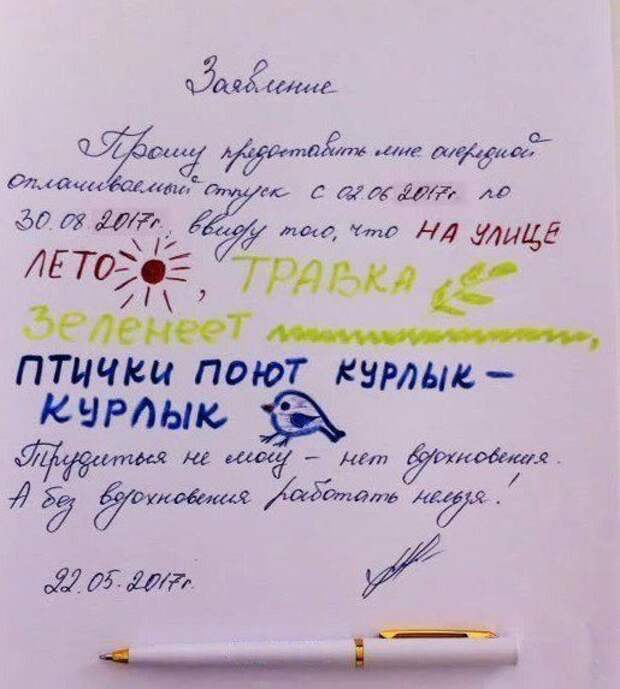 Заявление
Прошу предоставить мне очередной
оплачиваемый отпуск с 02.06 2017г. по
30.08 2017г., ввиду того, что НА УЛИЦЕ
ЛЕТО, ТРАВКА
Зеленеет,
ПТИЧКИ ПОЮТ КУРЛЫК-
КУРЛЫК
Трудиться не могу - нет вдохновения.
А без вдохновения работать нельзя!
22.05.2017г.